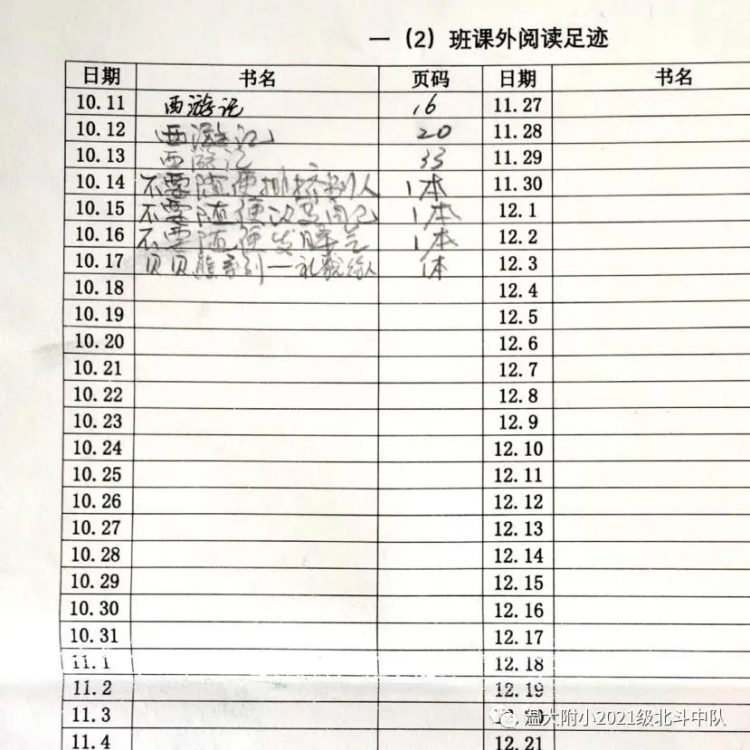 一（2）班课外阅读足迹
日期 书名 页码 日期 书名
10.11 西游记 16 11.27
10.12 西游记 20 11.28
10.13 西游记 33 11.29
10.14 不要随便排挤别人 1本 11.30
10.15 不要随便 自己 1本 12.1
10.16 不要随便发脾气 1本 12.2
10.17 贝贝熊系列— 1本 12.3
10.18 12.4
10.19 12.5
10.20 12.6
10.21 12.7
10.22 12.8
10.23 12.9
10.24 12.10
10.25 12.11
10.26 12.12
10.27 12.13
10.28 12.14
10.29 12.15
10.30 12.16
10.31 12.17
11.1 12.18
11.2 12.19
11.3 12.20
11.4 12.21
温大附小2021级北斗中队